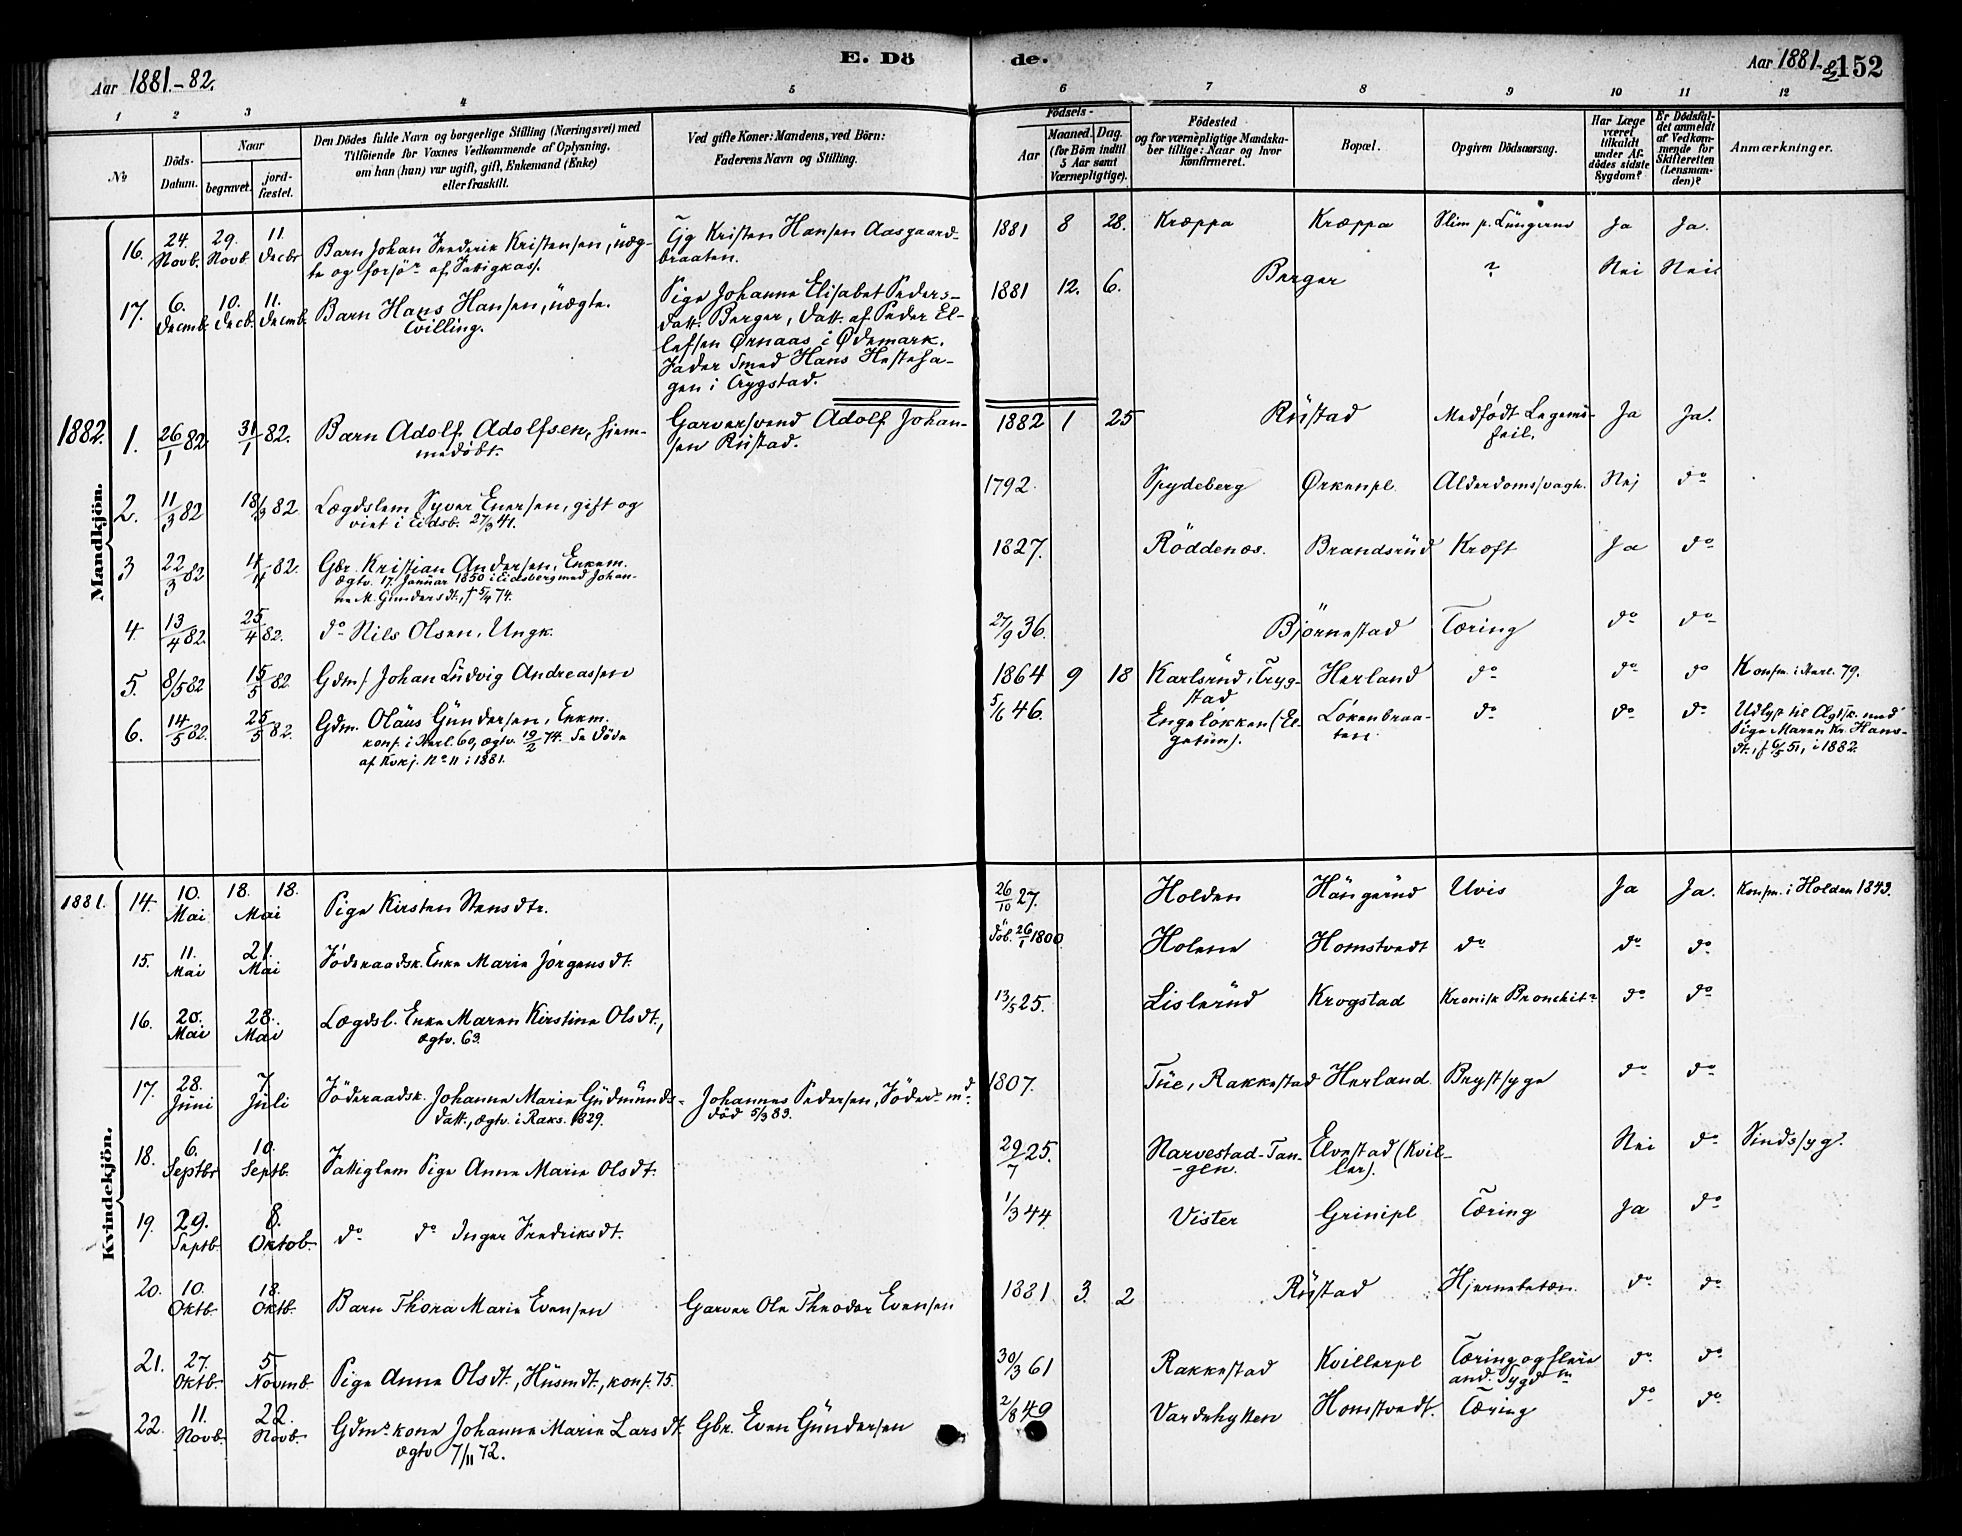 E. Dö
de.
Aar 1881.-82.
Aar 1881.-82
152
1 2 3 4 5 6 7 8 9 10 11 12
No
Döds-
Datum.
Naar
begravet.
jord-
fæstet.
Den Dödes fulde Navn og borgerlige Stilling (Næringsvei) med
Tilföiende for Voxnes Vedkommende af Oplysning,
om han (hun) var ugift, gift, Enkemand (Enke)
eller fraskilt.
Ved gifte Koner: Mandens, ved Börn:
Faderens Navn og Stilling.
Födsels-
Aar
Maaned. Dag.
(for Börn indtil
5 Aar samt
Værnepligtige).
Födested
og for værnepligtige Mandska-
ber tillige: Naar og hvor
konfirmeret.
Bopæl.
Opgiven Dödsaarsag.
Har Læge
været
tilkaldt
under Af-
dödes sidste
Sygdom?
Er Dödsfal-
det anmeldt
af Vedkom-
mende for
Skifteretten
(Lensman-
den)?
Anmærkninger.
Mandkjön.
16. 24. Novb. 29. Novb. 11. Decbr Barn Johan Frederik Kristensen, uæg-
te og forsör. af Fattigkass.
Tjg Kristen Hansen Aasgaard-
braaten.
1881 8 28. Kræppa Kræppa Slim p. Lungerne Ja Ja.
17. 6. Decmb. 10. Decb. 11. Decmb. Barn Hans Hansen, uægte.
Tvilling.
Pige Johanne Elisabet Peders-
datt. Berger, Datt. af Peder El-
lefsen Ørnaas i Ødemark.
Fader Smed Hans Hesteha-
gen i Trygstad.
1881 12. 6. Berger ? Nei Nei.
1882. 1. 26/1 82 31/1 82. Barn Adolf Adolfsen, hjem-
medöbt.
Garversvend Adolf Johan-
sen Rustad.
1882 1 25 Rustad Medfödt Legems-
feil. Ja Ja.
2. 11/3 82 18/3 82. Lægdslem Syver Enersen, gift og
viet i Eidsb. 27/3 41.
1792. Spydeberg Ørkenpl. Alderdomssvagh. Nej do
3 22/3 82 4/4 82. Gbr. Kristian Andersen, Enkem.
Ægtv. 17. Januar 1850 i Eidsberg med Johan-
ne M. Gundersdt., † 5/4 74.
1827. Röddenæs. Brandsrud Kroft Ja do
4. 13/4 82. 25/4 82. do Nils Olsen, Ungk.
27/9 36. Björnestad Tæring do do
5. 8/5 82 15/5 82. Gdms. Johan Ludvig Andreassen
1864 9 18 Karlsrud, Tryg-
stad Herland do do do Konfm. i Herl. 79.
6. 14/5 82. 25/5 82. Gdm. Olaus Gundersen, Enkm.
konf. i Herl. 60, ægtv. 19/2 74. Se Döde
af Kvkj. No 11 i 1881.
5/6 46. Engelökken (El-
getun). Lökenbraa-
ten. do do do Udlyst til Ægtsk. med
Pige Maren Kr. Hans-
dt., f 6/5 51, i 1882.
Kvindekjön.
1881. 14. 10. Mai 18. 18. Mai Pige Kirsten Stensdtr.
26/10 27. Holden Haugerud Uvis Ja Ja. Konfm. i Holden 1843.
15. 11. Mai 21. Mai Föderaadsk. Enke Marie Jörgensdt.
döb. 26/1 1800 Holene Homstvedt do do do
16. 20. Mai 28. Mai Lægdsl. Enke Maren Kirstine Olsdt.,
ægtv. 63.
13/5 25. Lislerud Krogstad Kronisk Bronchit. do do
17. 28. Juni 7. Juli Föderaadsk. Johanne Marie Gudmunds-
datt., ægtv. i Raks. 1829.
Johannes Pedersen, Föder. md
död 5/3 83.
1807. Tue, Rakkestad Herland. Brystsyge do do
18. 6. Septbr 10. Septb. Fattiglem Pige Anne Marie Olsdt.
29/7 25. Narvestad-Tan-
gen. Elvestad (Kvil-
ler). Nei do Sindssyg.
19. 29. Septb. 8. Oktob. do do Inger Fredriksdt.
1/3 44 Vister Grinipl Tæring Ja do
20. 10. Oktb. 18. Oktb. Barn Thora Marie Evensen Garver Ole Theodor Evensen
1881 3. 2 Rustad Hjernebetæn. do do
21. 27. Oktb. 5. Novmb. Pige Anne Olsdt., Husmdt., konf. 75.
30/3 61 Rakkestad Kvillerpl Tæring og flere
and. Sygd m do do
22. 11. Novb. 22. Novb. Gdms kone Johanne Marie Larsdt. Gbr. Even Gundersen
ægtv 7/11 72.
2/8 49 Vardehytten Homstvedt. Tæring do do